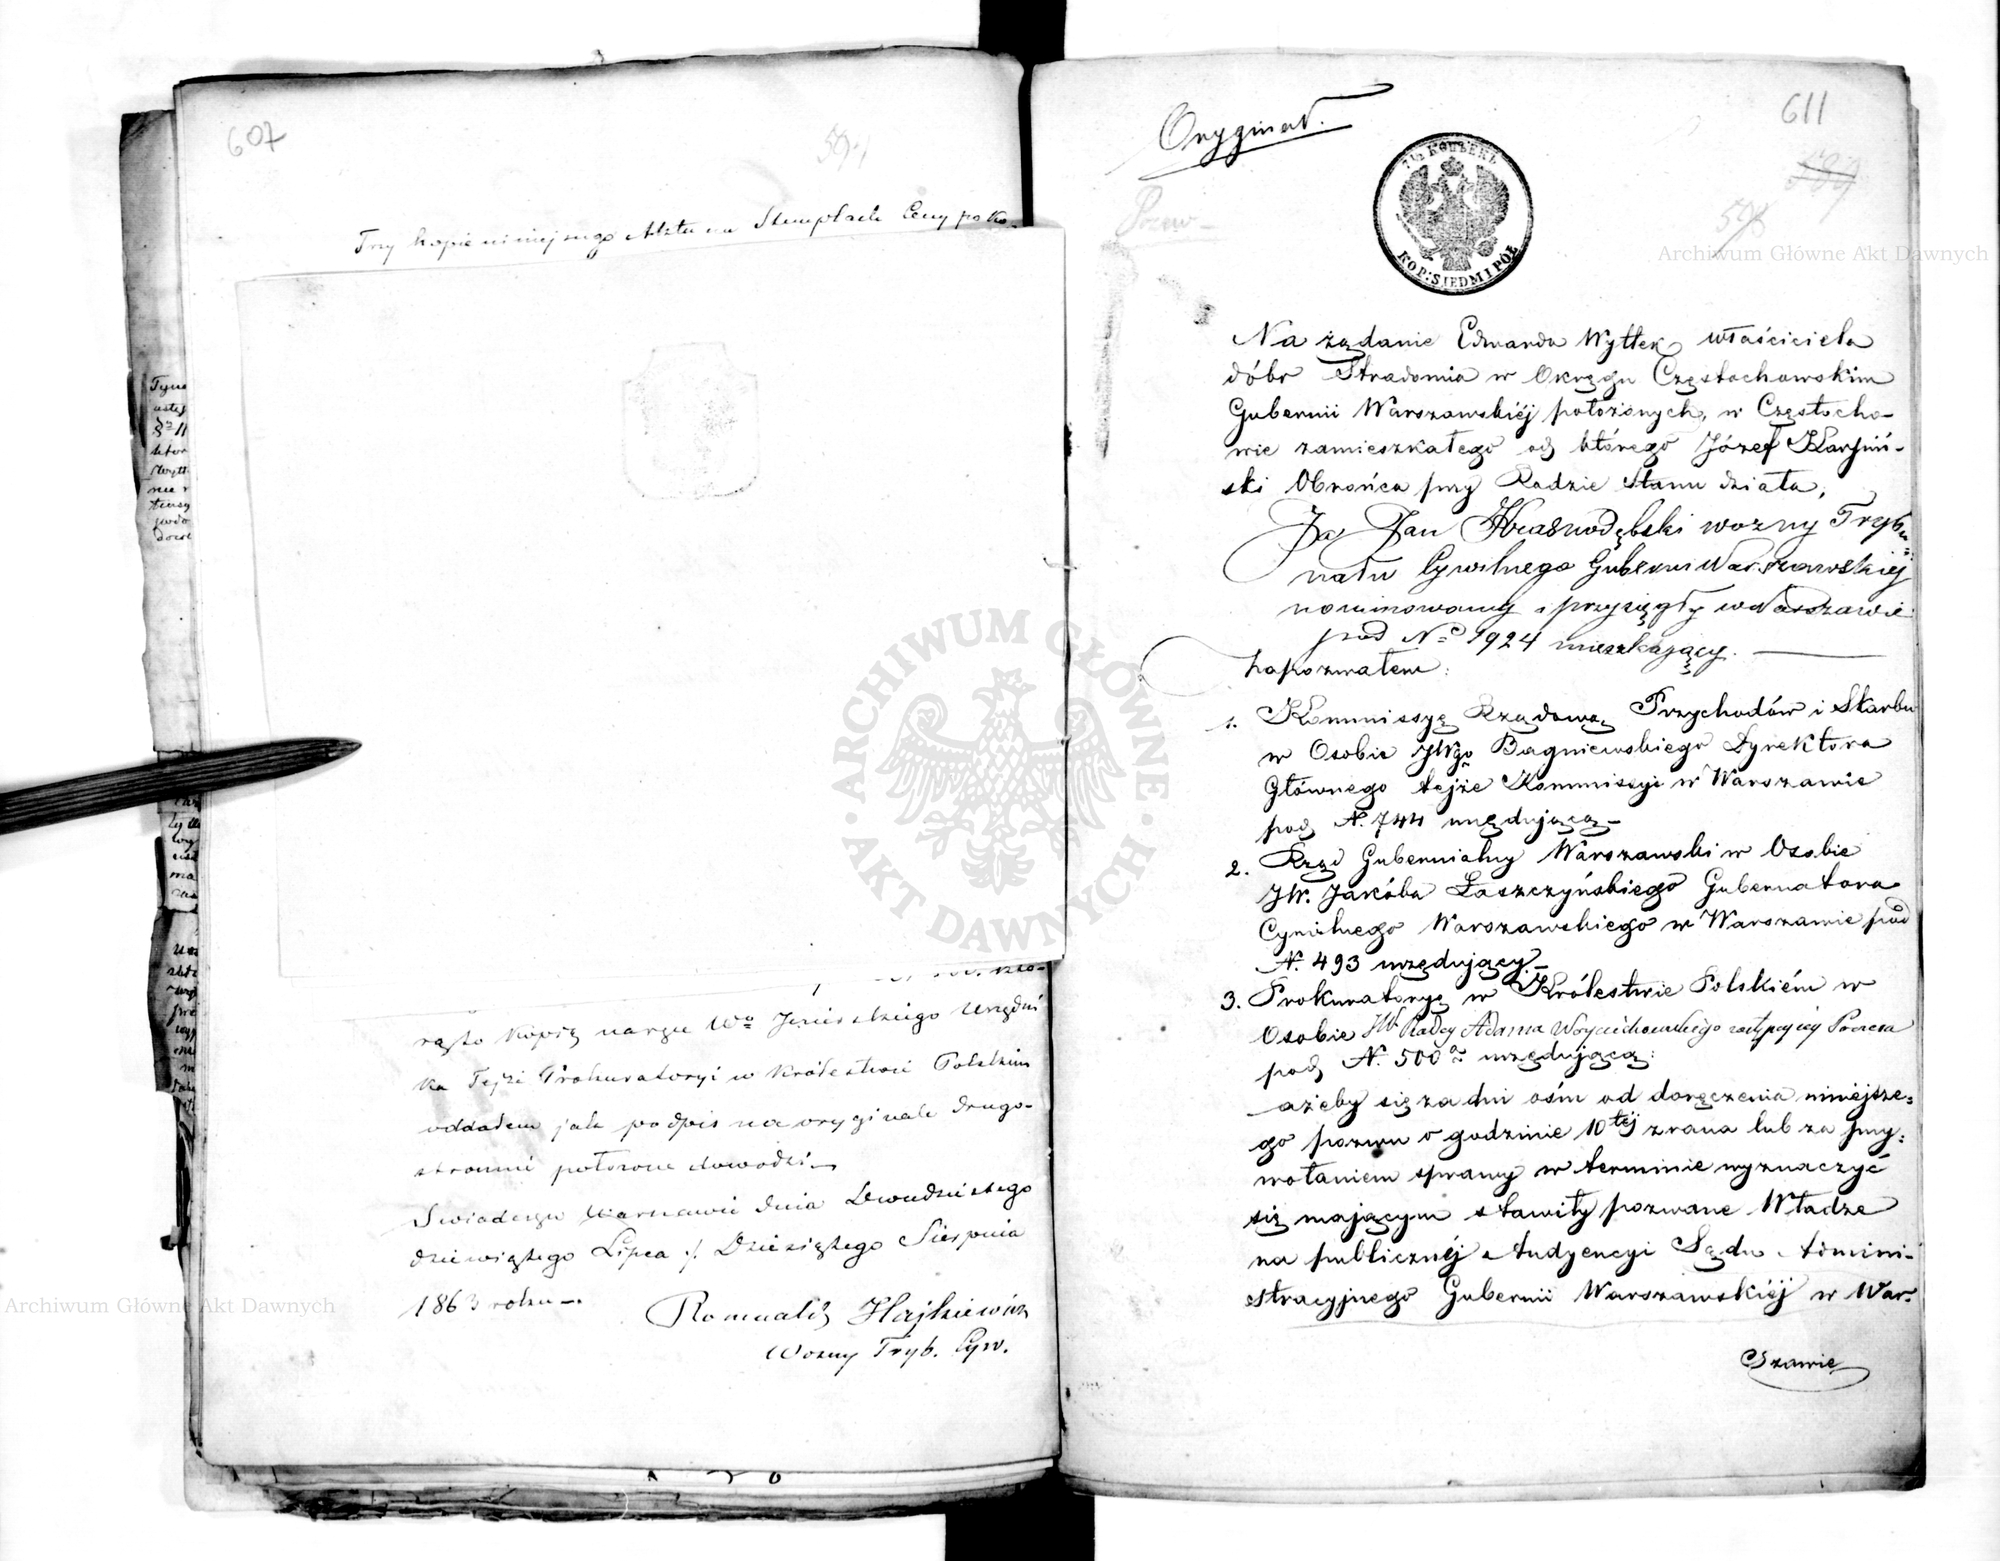 607
Trzy kopie niniejszego Aktu na Stemplach Ceny po ko-
rąsto kopię naręce Wo Urzędni
ka Tejże Prokuratoryi w Królestwie Polskim
oddałem jak podpis na oryginale drugo-
stronnie położone dowodzi
Swiadczę Warszawie dnia Dwudziestego
dziewiątego Lipca /. Dziesiątego Sierpnia
1863 roku
Romuald Hajkiewicz
Wozny Tryb. Cyw.
Oryginał.
611
589
598
7 1/2 КОПѢЕКЪ
KOP: SIEDM I PÓŁ
Na żądanie Edwarda Wyttek właściciela
dóbr Stradomia w Okręgu Częstochowskim
Gubernii Warszawskiéj położonych, w Częstocho-
wie zamieszkałego od którego Józef Karpiń-
ski Obrońca przy Radzie Stanu działa,
Ja Jan Krasnodębski wozny Trybu
nału Cywilnego Guberni Warszawskiej
nominowany i przysięgły w Warszawie
pod No 1924 mieszkający.
zapozwałem:
1. Kommissyę Rządową Przychodów i Skarbu
w Osobie JWgo Bagniewskiego Dyrektora
Głównego tejże Kommissyi w Warszawie
pod N. 744 urzędującą
2. Rząd Gubernialny Warszawski w Osobie
JW. Jakóba Łaszczyńskiego Gubernatora
Cywilnego Warszawskiego w Warszawie pod
N. 493 urzędujący
3. Prokuratoryę w Królestwie Polskiém w
Osobie JW Radcy Adama Woyciechowskiego zastępującej Prezesa
pod N. 500 urzędującą:
ażeby się za dni ośm od doręczenia niniejsze-
go pozwu o godzinie 10téj zrana lub za przy-
wołaniem sprawy w terminie wyznaczyć
się mającym stawiły pozwane Władze
na publicznéj Audyencyi Sądu Admini-
stracyjnego Gubernii Warszawskiéj w War-
szawie
Archiwum Główne Akt Dawnych
ARCHIWUM GŁÓWNE AKT DAWNYCH
Archiwum Główne Akt Dawnych